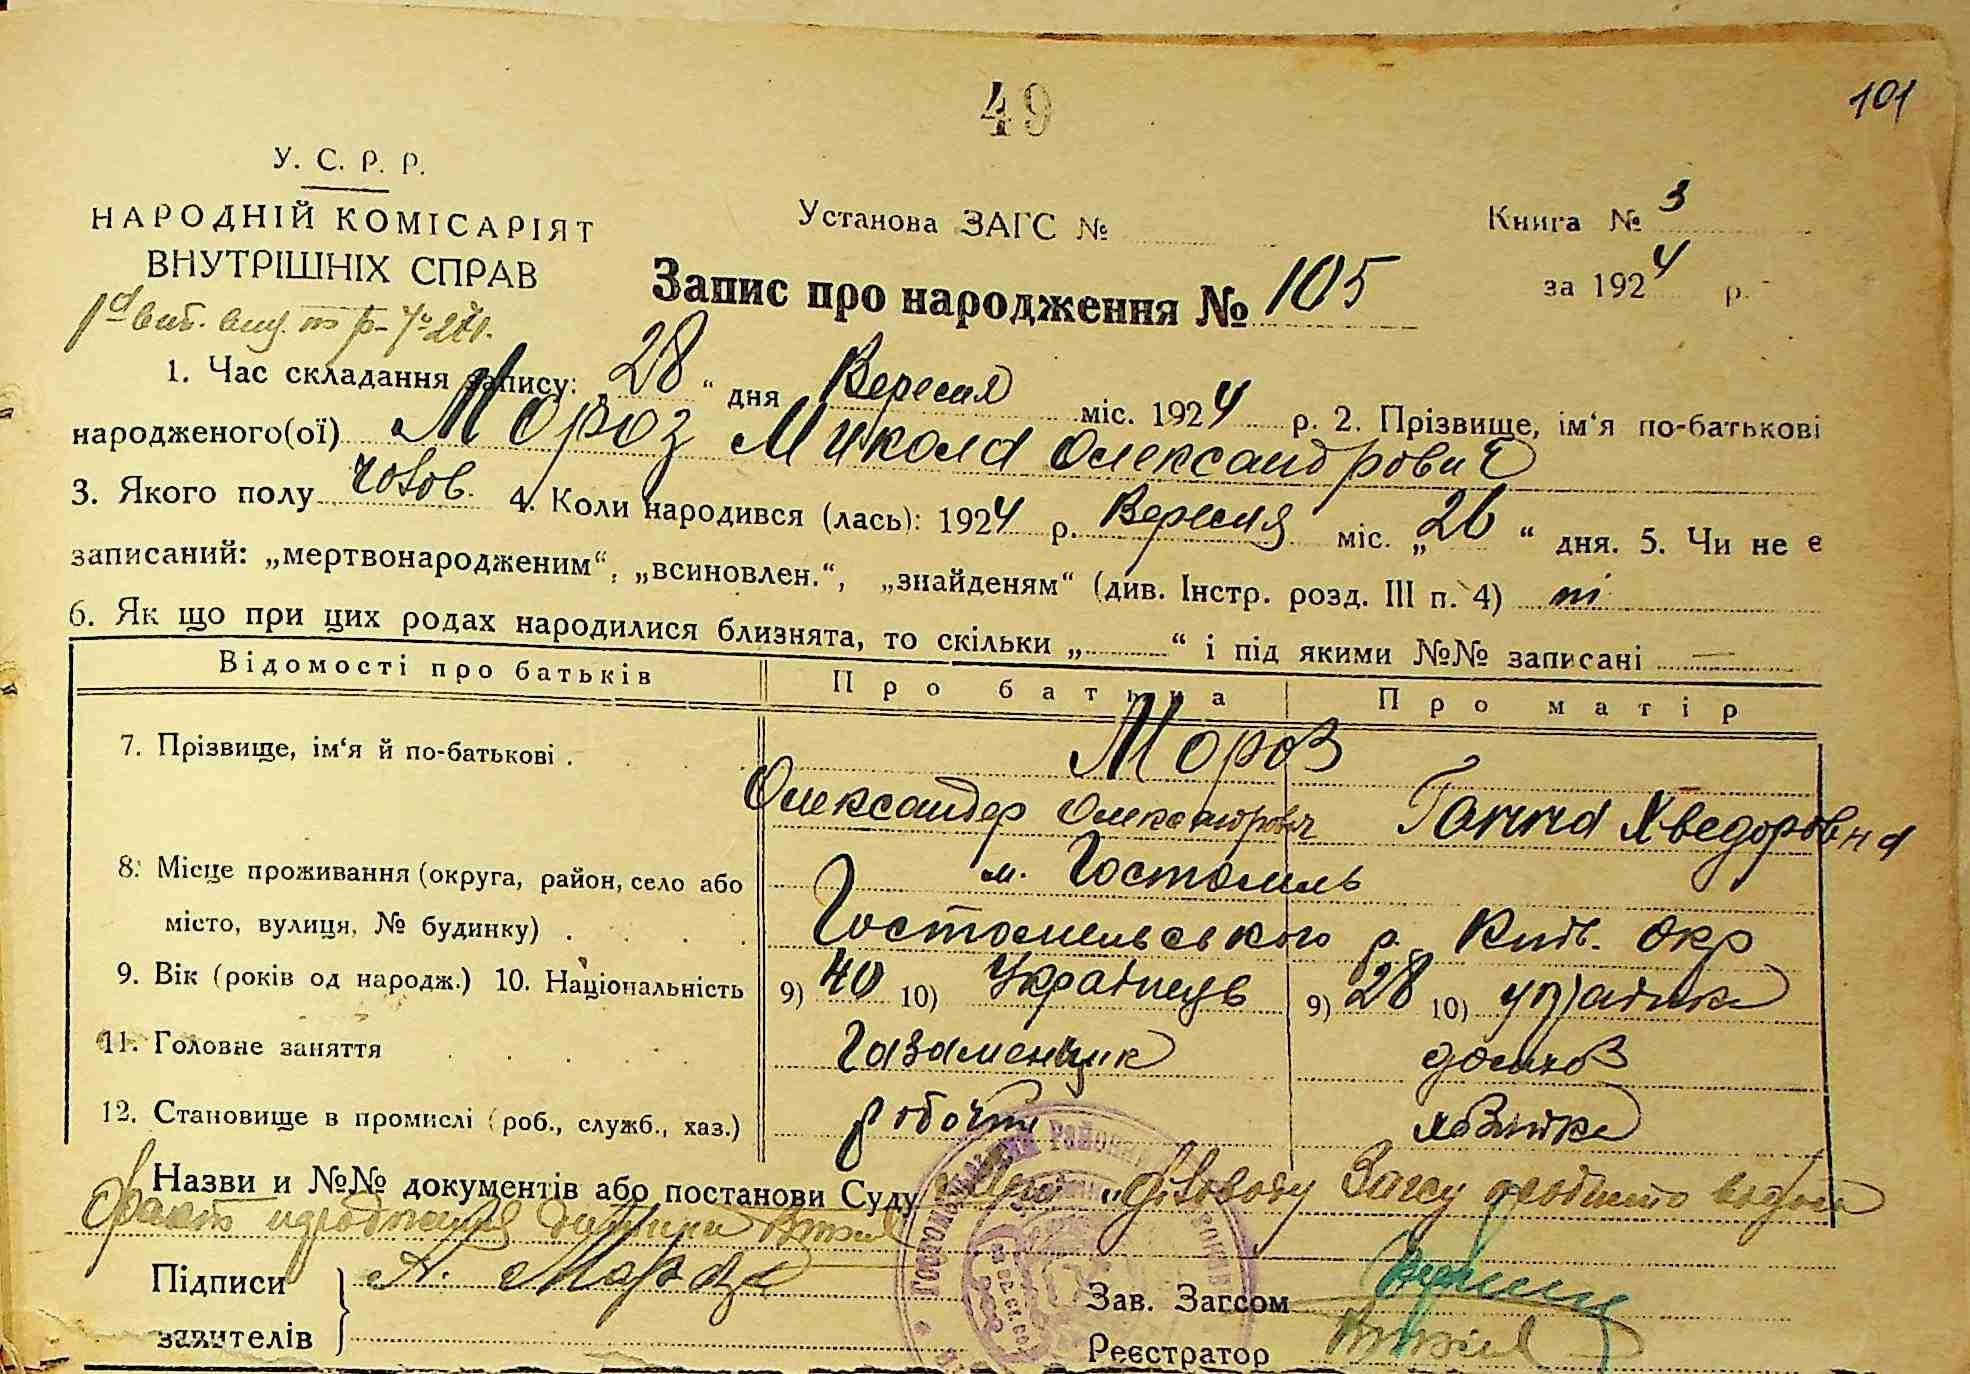 49
101
У. С. Р. Р.
НАРОДНІЙ КОМІСАРІЯТ
ВНУТРІШНІХ СПРАВ
Установа ЗАГС №
Книга № 3
за 1924 р.
Запис про народження № 105
1. Час складання запису: „28“ дня Вересня міс. 1924 р. 2. Прізвище, ім'я по-батькові
народженого(ої) Мороз Микола Олександрович
3. Якого полу чолов. 4. Коли народився (лась): 1924 р. Вересня міс. „26“ дня. 5. Чи не є
записаний: „мертвонародженим“, „всиновлен.“, „знайденям“ (див. Інстр. розд. III п. 4) ні
6. Як що при цих родах народилися близнята, то скільки „ “ і під якими №№ записані —
Відомості про батьків Про батька Про матір
7. Прізвище, ім'я й по-батькові . Мороз
Олександер Олександрович Ганна Хведоровна
8. Місце проживання (округа, район, село або м. Гостомель
місто, вулиця, № будинку) . Гостомельського р. Київ. окр
9. Вік (років од народж.) 10. Національність 9) 40 10) Українець 9) 28 10) українка
11. Головне заняття
12. Становище в промислі (роб., служб., хаз.) робочий хазяйка
Назви и №№ документів або постанови Суду
Підписи
заявителів
Зав. Загсом
Реєстратор